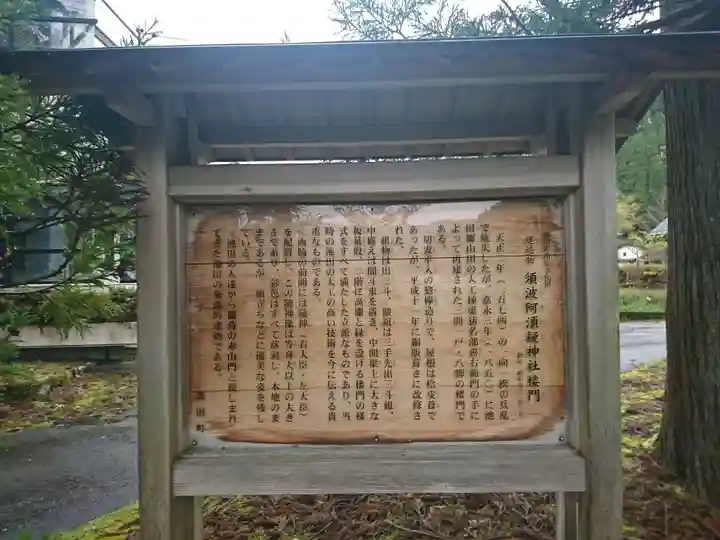 建造物 須波阿湏疑神社楼門
天正二年（一五七四）の一向一揆の兵乱
で焼失したが、嘉永三年（一八五〇）に池
田郷山田の大工棟東諸名部善右衛門の手に
よって再建された三間一戸・八脚の楼門で
ある。
切妻平入の惣欅造りで、屋根は桧皮葺で
あったが、平成十一年に銅版葺きに改修さ
れた。
組物は出三斗、腰組は三手先出三斗組、
中備え詰間斗束を置き、中間梁上に大きな
板蟇股、二階に高欄と縁を設ける楼門の様
式をすべて満たした立派なものであり、当
時の池田の大工の高い技術を今に伝える貴
重なものである。
両脇の前面には随神（右大臣・左大臣）
を配置し、この随神像は等身大以上の大き
さであり、彩色はすべて落剥し、木地のま
まであるが、顔立ちなどに優美な姿を残し
ている。
池田の人達から鵜葺の赤山門と親しまれ
てきた池田の象徴的建物である。
池田町